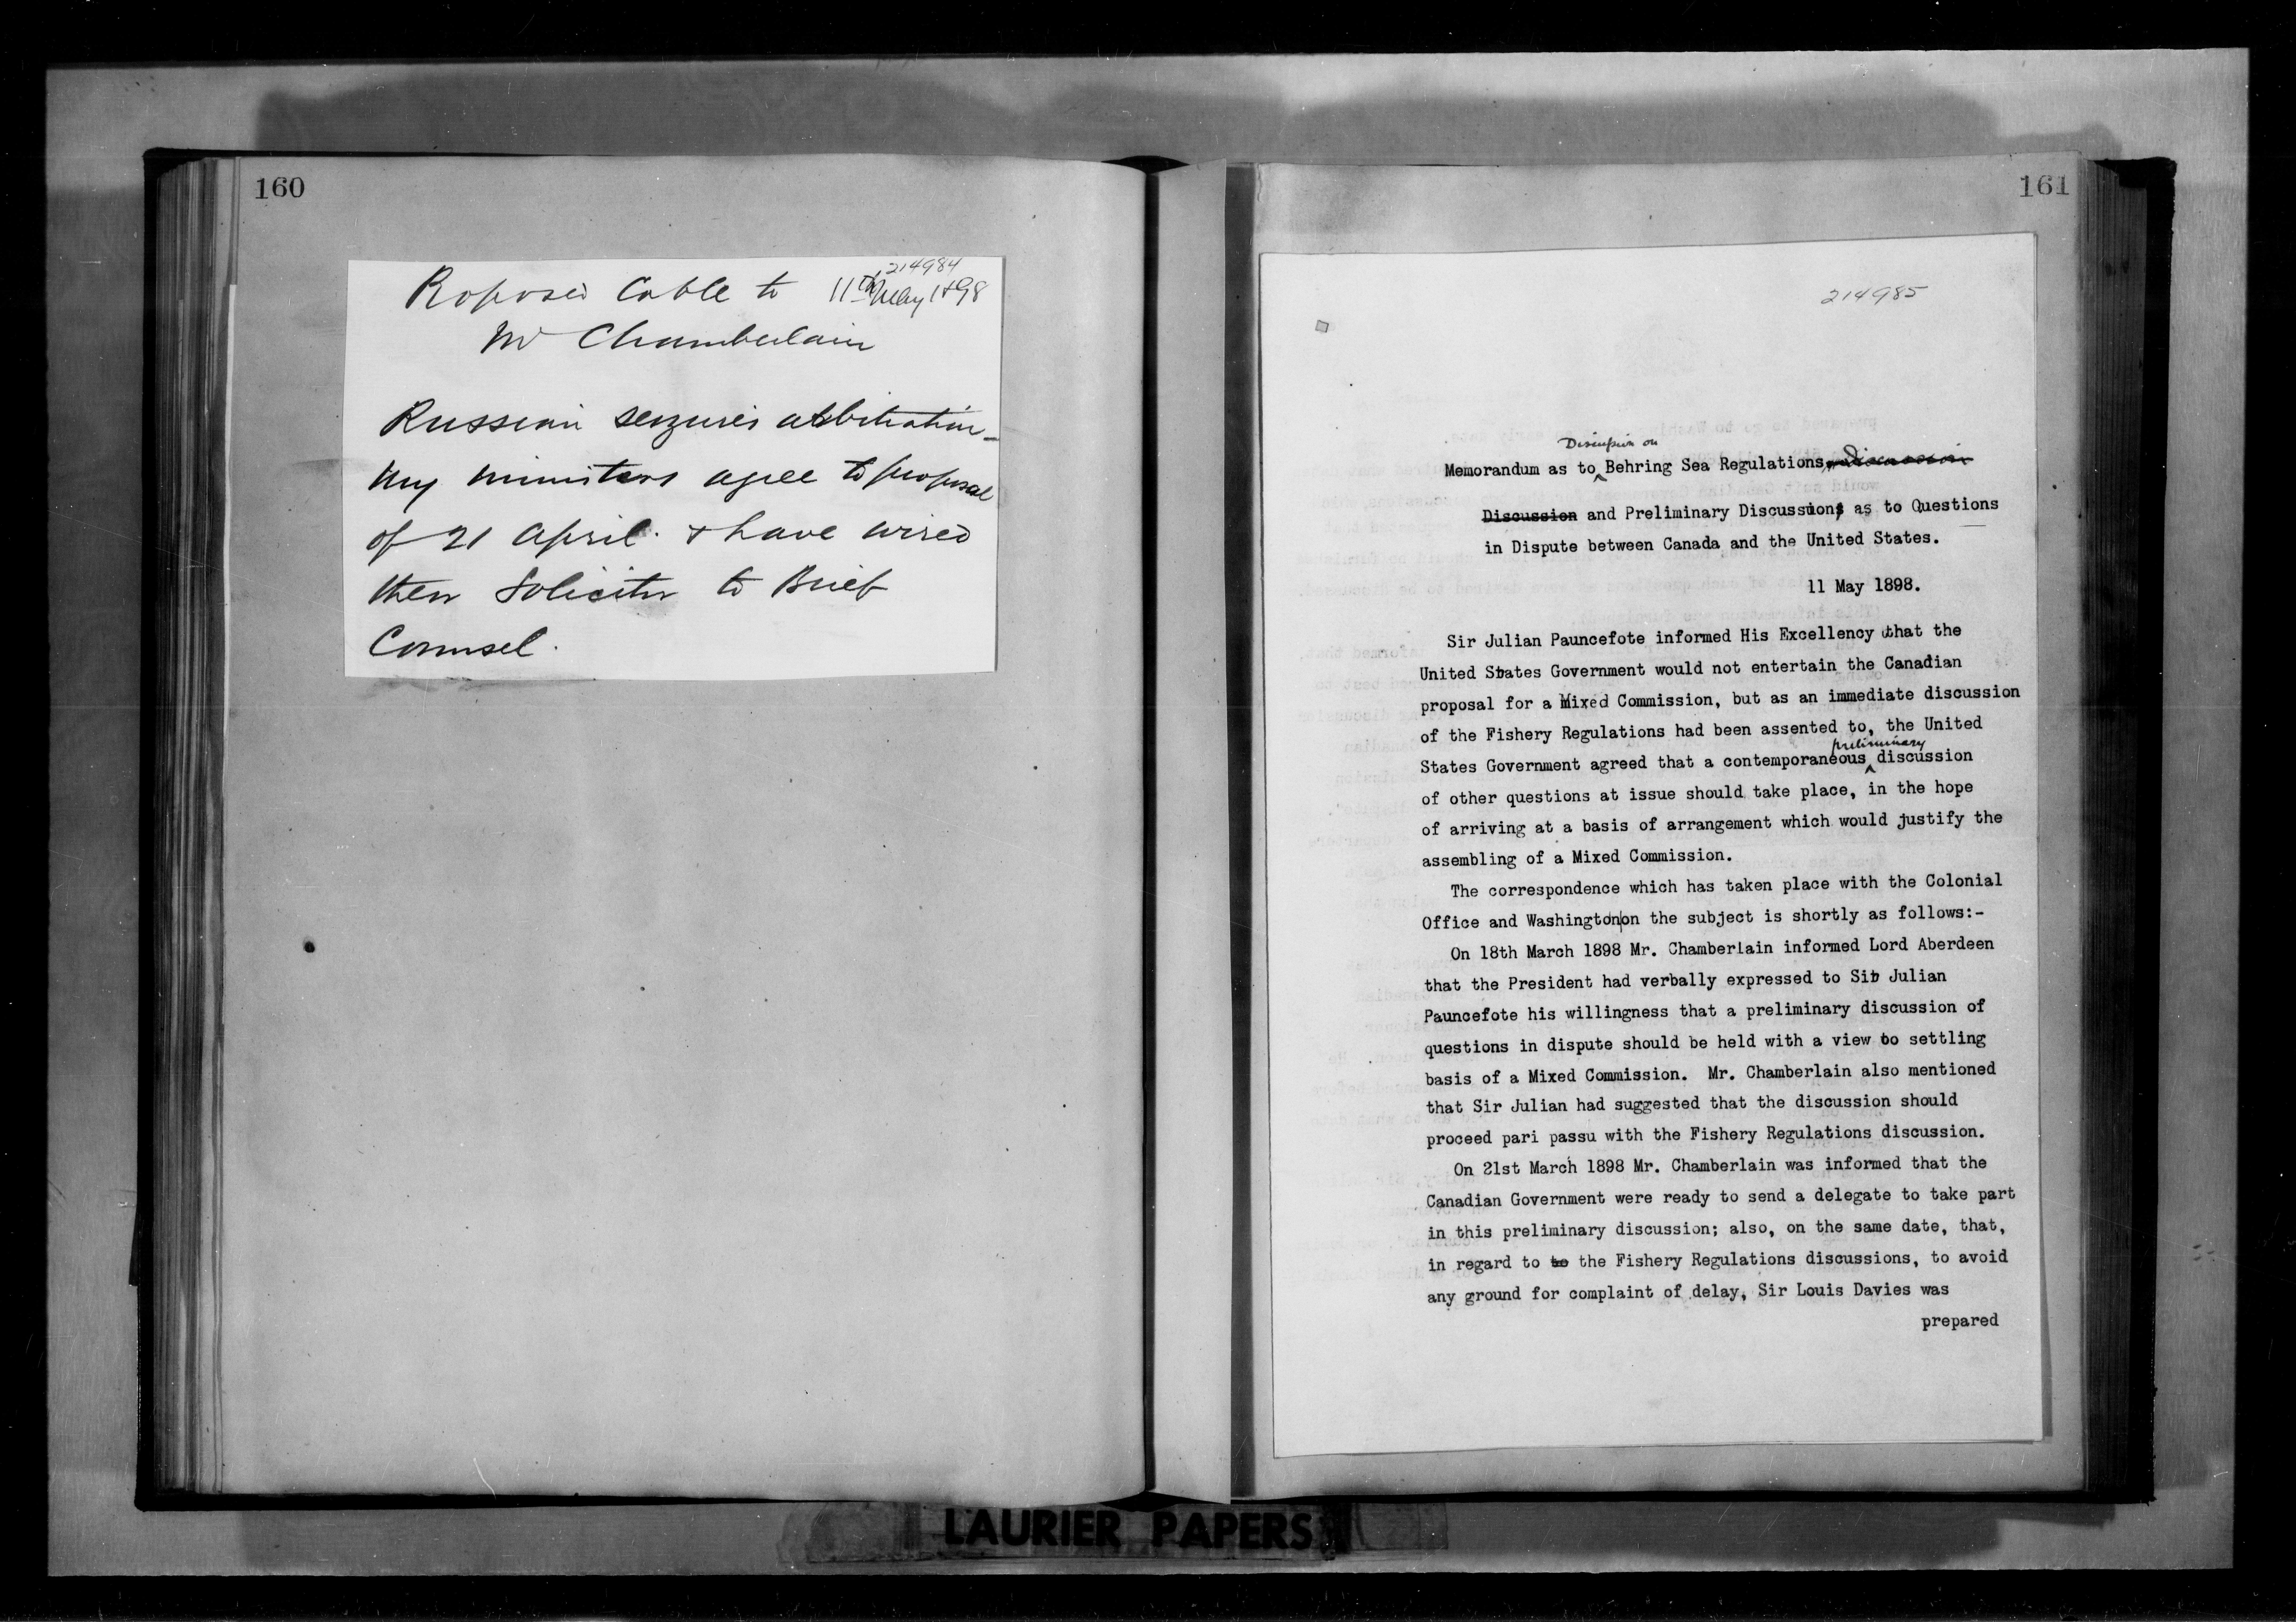 160
214984
Proposed Cable to 11th May 1898
Mr Chamberlain
Russian seizures arbitration_
My ministers agree to proposal
of 21 April. & have wired
their Solicitor to Brief
Counsel.
161
214985
Discussion on
Memorandum as to Behring Sea Regulations, discussion
Discussion and Preliminary Discussions as to Questions
in Dispute between Canada and the United States.
11 May 1898.
Sir Julian Pauncefote informed His Excellency that the
United States Government would not entertain the Canadian
proposal for a Mixed Commission, but as an immediate discussion
of the Fishery Regulations had been assented to, the United
preliminary
States Government agreed that a contemporaneous discussion
of other questions at issue should take place, in the hope
of arriving at a basis of arrangement which would justify the
assembling of a Mixed Commission.
The correspondence which has taken place with the Colonial
Office and Washington|on the subject is shortly as follows:-
On 18th March 1898 Mr. Chamberlain informed Lord Aberdeen
that the President had verbally expressed to Sir Julian
Pauncefote his willingness that a preliminary discussion of
questions in dispute should be held with a view to settling
basis of a Mixed Commission. Mr. Chamberlain also mentioned
that Sir Julian had suggested that the discussion should
proceed pari passu with the Fishery Regulations discussion.
On 21st March 1898 Mr. Chamberlain was informed that the
Canadian Government were ready to send a delegate to take part
in this preliminary discussion; also, on the same date, that,
in regard to to the Fishery Regulations discussions, to avoid
any ground for complaint of delay, Sir Louis Davies was
prepared
LAURIER PAPERS